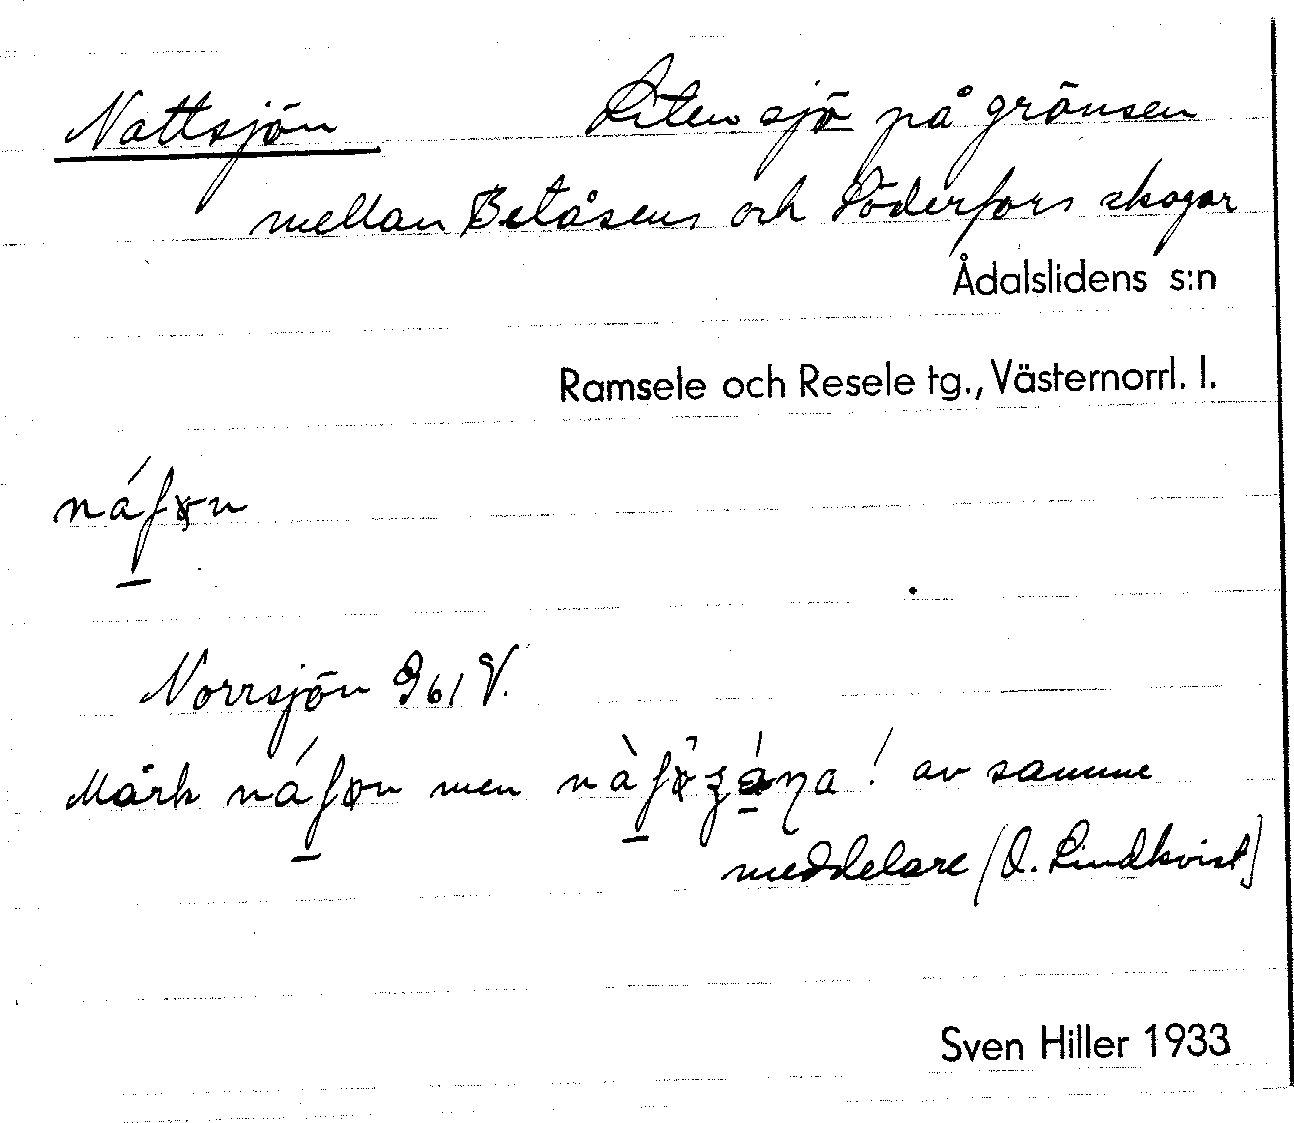 Nattsjön Liten sjö på gränsen
mellan Betåsens och Söderfors skogar
Ådalslidens s:n
Ramsele och Resele tg., Västernorrl. l.
náʃɤn
Norrsjön G 61 V.
Märk náʃɤn men
! av samme
meddelare (O. Lindkvist)
Sven Hiller 1933